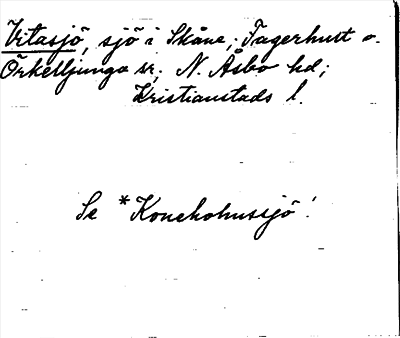 Vitasjö, sjö i Skåne; Fagerhult o.
Örkelljunga sr; N. Åsbo hd;
Kristianstads l.
Se *Kouekohussjö!